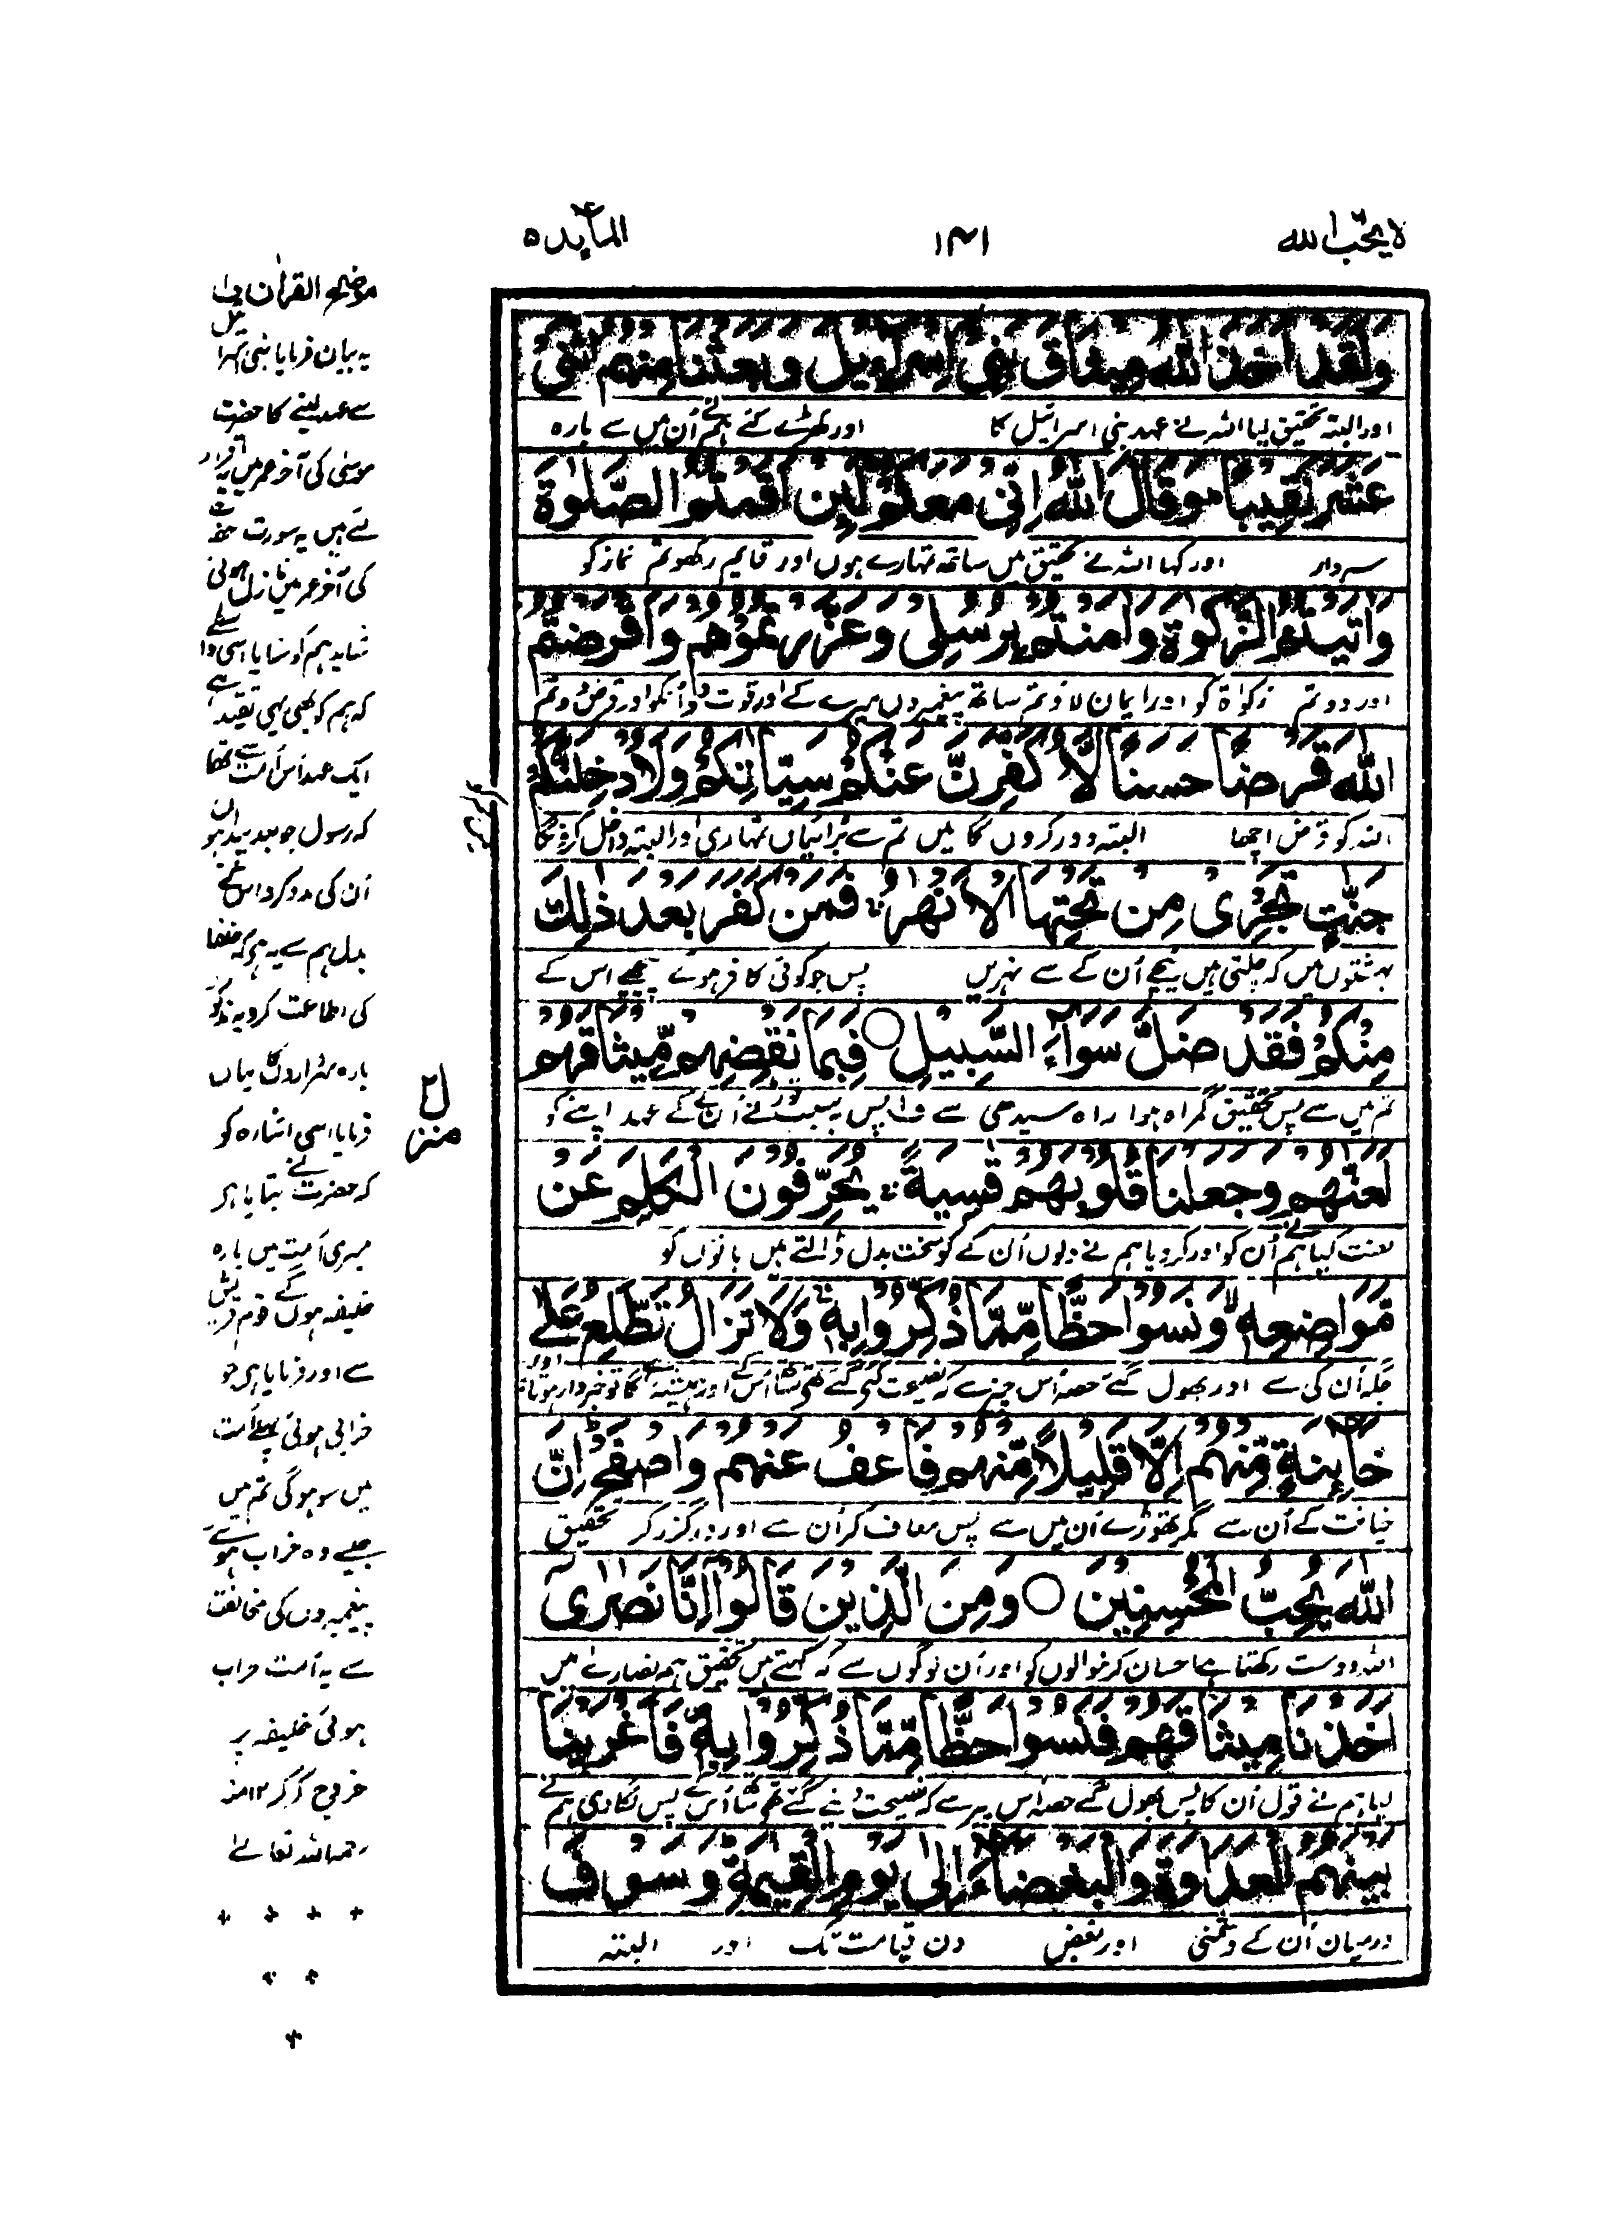 لا یحب الله
۱۴۱
المآیده ۵
وَلَقَدْ اَخَذَ اللّٰهُ مِيْثَاقَ بَنِيْ اِسْرَآءِيْلَ وَبَعَثْنَا مِنْهُمُ اثْنَيْ
اور البتہ تحقیق لیا اللہ نے عہد بنی اسرائیل کا اور کھڑے کئے ہم نے اُن میں سے بارہ
عَشَرَ نَقِيْبًا وَقَالَ اللّٰهُ اِنِّيْ مَعَكُمْ لَئِنْ اَقَمْتُمُ الصَّلٰوةَ
سردار اور کہا اللہ نے تحقیق میں ساتھ تمہارے ہوں اور قایم رکھو تم نماز کو
وَاٰتَيْتُمُ الزَّكٰوةَ وَاٰمَنْتُمْ بِرُسُلِيْ وَعَزَّرْتُمُوْهُمْ وَاَقْرَضْتُمُ
اور دو تم زکوٰۃ کو اور ایمان لاؤ تم ساتھ پیغمبروں میرے کے اور قوت دو اُنکو اور قرض دو تم
اللّٰهَ قَرْضًا حَسَنًا لَّاُكَفِّرَنَّ عَنْكُمْ سَيِّاٰتِكُمْ وَلَاُدْخِلَنَّكُمْ
اللہ کو قرض اچھا البتہ دور کروں گا میں تم سے بُرائیاں تمہاری اور البتہ داخل کرونگا
جَنّٰتٍ تَجْرِيْ مِنْ تَحْتِهَا الْاَنْهٰرُ فَمَنْ كَفَرَ بَعْدَ ذٰلِكَ
بہشتوں میں کہ چلتی ہیں نیچے اُن کے سے نہریں پس جو کوئی کافر ہووے پیچھے اس کے
مِنْكُمْ فَقَدْ ضَلَّ سَوَآءَ السَّبِيْلِ ○ فَبِمَا نَقْضِهِمْ مِّيْثَاقَهُمْ
تم میں سے پس تحقیق گمراہ ہوا راہ سیدھی سے ف پس بہ سبب توڑنے اُن کے عہد اپنے کو
لَعَنّٰهُمْ وَجَعَلْنَا قُلُوْبَهُمْ قٰسِيَةً يُحَرِّفُوْنَ الْكَلِمَ عَنْ
لعنت کیا ہم نے اُن کو اور کر دیا ہم نے دلوں اُن کے کو سخت بدل ڈالتے ہیں باتوں کو
مَّوَاضِعِهٖ وَنَسُوْا حَظًّا مِّمَّا ذُكِّرُوْا بِهٖ وَلَا تَزَالُ تَطَّلِعُ عَلٰى
جگہ اُن کی سے اور بھول گئے حصہ اُس چیز سے کہ نصیحت کئے گئے تھے ساتھ اُس کے اور ہمیشہ کا تو خبردار ہوتا
خَآئِنَةٍ مِّنْهُمْ اِلَّا قَلِيْلًا مِّنْهُمْ فَاعْفُ عَنْهُمْ وَاصْفَحْ اِنَّ
خیانت کے اُن سے مگر تھوڑے اُن میں سے پس معاف کر اُن سے اور درگزر کر تحقیق
اللّٰهَ يُحِبُّ الْمُحْسِنِيْنَ ○ وَمِنَ الَّذِيْنَ قَالُوْا اِنَّا نَصٰرٰى
اللہ دوست رکھتا ہے احسان کرنیوالوں کو اور اُن لوگوں سے کہ کہتے ہیں تحقیق ہم نصارے ہیں
اَخَذْنَا مِيْثَاقَهُمْ فَنَسُوْا حَظًّا مِّمَّا ذُكِّرُوْا بِهٖ فَاَغْرَيْنَا
لیا ہم نے قول اُن کا پس بھول گئے حصہ اس چیز سے کہ نصیحت دئے گئے تھے ساتھ اُس کے پس لگا دی ہم نے
بَيْنَهُمُ الْعَدَاوَةَ وَالْبَغْضَآءَ اِلٰى يَوْمِ الْقِيٰمَةِ وَسَوْفَ
درمیان اُن کے دشمنی اور بغض دن قیامت تک اور البتہ
منزل ۲
موضح القرآن ف
یہ بیان فرمایا بنی اسرائیل
سے عہد لینے کا حضرت
موسٰی کی آخر عمر میں یہ اقرار
لئے ہیں یہ سورت حضرت
کی آخر عمر میں نازل ہوئی
شاید ہم کو سنایا اسی واسطے
کہ ہم کو بھی یہی تقید ہے
ایک عہد اُس اُمت سے تھا
کہ رسول جو بعد پیدا ہو
اُن کی مدد کرو اس کے
بدل ہم سے یہ ہے کہ خلفا
کی اطاعت کرو یہ مذکور
بارہ سردار کا یہاں
فرمایا اسی اشارہ کو
کہ حضرت نے بتایا ہے
میری اُمت میں بارہ
خلیفہ ہوں گے قوم قریش
سے اور فرمایا ہے جو
خرابی ہوئی پہلے اُمت
میں سو ہوگی تم میں
جیسے وہ خراب ہوئے
پیغمبروں کی مخالفت
سے یہ اُمت خراب
ہوئی خلیفہ پر
خروج کر کر ۱۲ منہ
رحمہ اللہ تعالےٰ